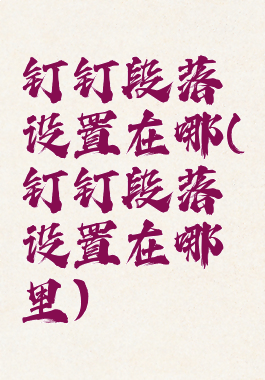 钉钉段落
设置在哪(
钉钉段落
设置在哪
里)